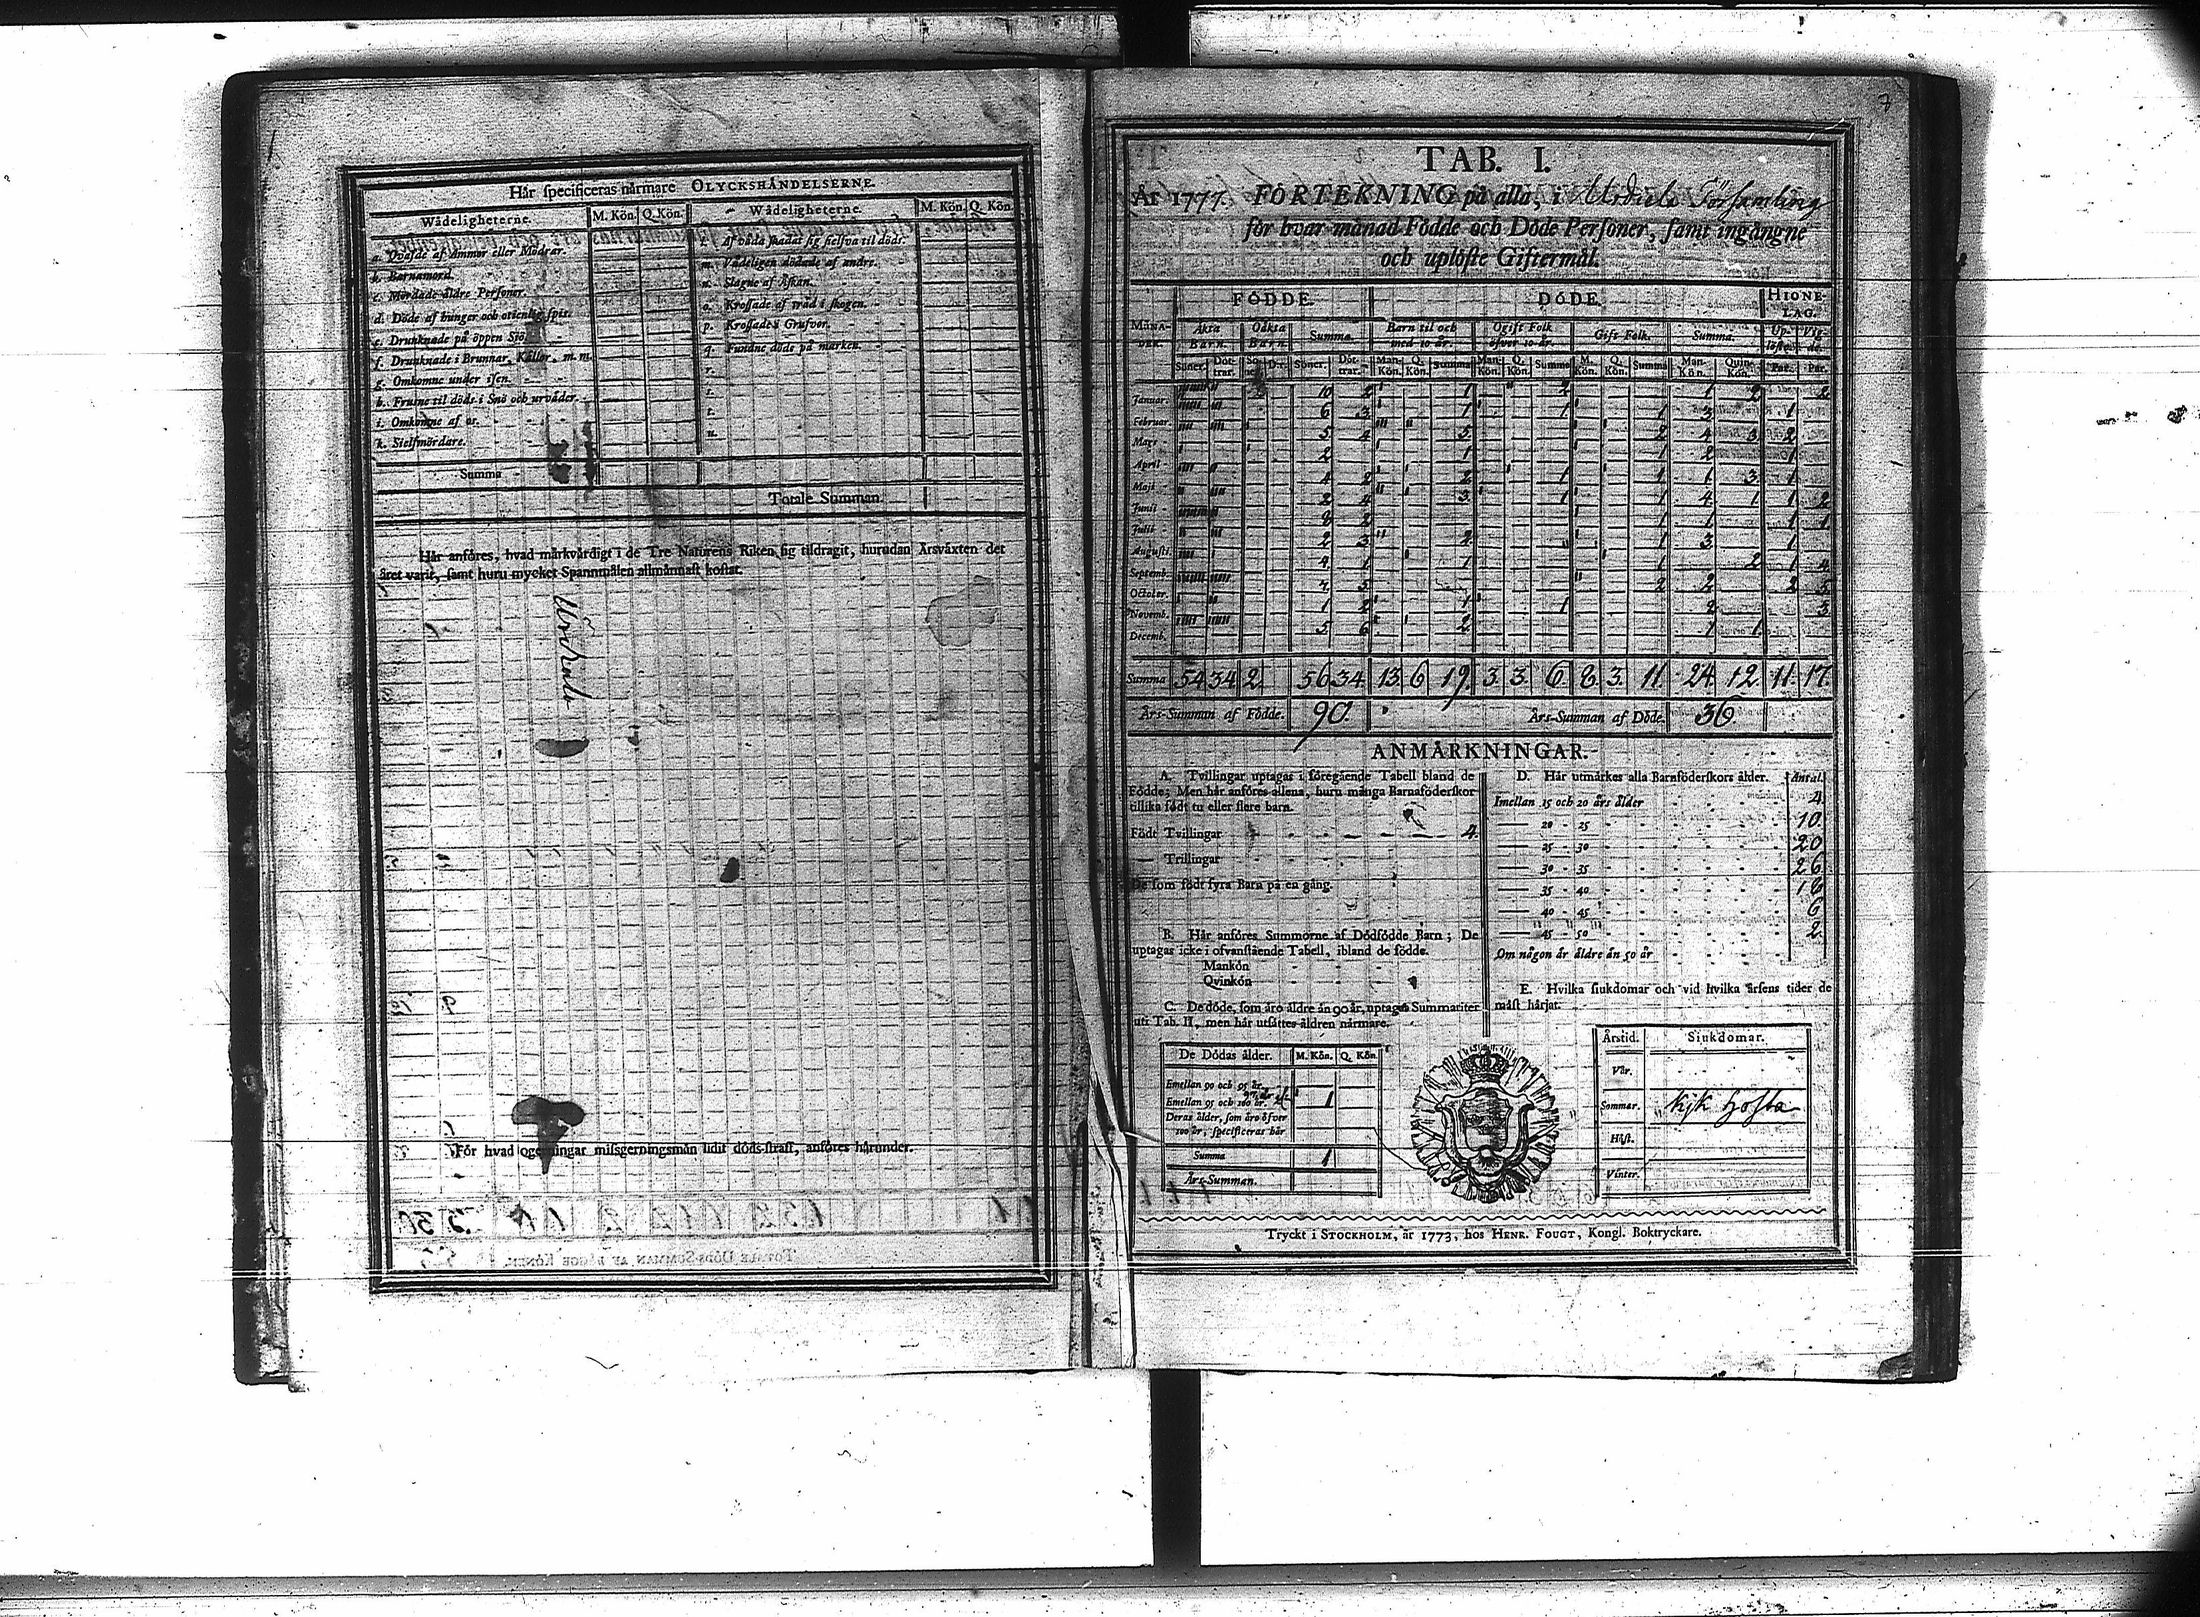 Här specificeras närmare OLYCKSHÄNDELSERNE.
Wådeligheterne. M. Kön. Q. Kön. Wådeligheterne. M. Kön. Q. Kön.
a. Qvafde af Ammor eller Mödrar.
b. Barnamord.
c. Mördade äldre Personer.
d. Döde af hunger och otienlig spis.
e. Drunknade på öppen Sjö
f. Drunknade i Brunnar, Källor, m. m.
g. Omkomne under isen.
h. Frusne til döds i Snö och urväder.
i. Omkomne af os.
k. Sielfmördare.
l. Af våda skadat sig sielfva til döds.
m. Vådeligen dödade af andre.
n. Slagne af Åskan.
o. Krossade af träd i skogen.
p. Krossade i Grufvor.
q. Funne döde på marken.
r.
s.
t.
u.
Summa
Totale Summan
Här anföres, hvad märkvärdigt i de Tre Naturens Riken sig tildragit, hurudan Årsväxten det
året varit, samt huru mycket Spannmålen allmännast kostat.
För hvad ogerningar missgerningsmän lidit döds-straff, anföres härunder.
TOTALE DÖDS-SUMMAN AF BÄGGE KÖNEN.
7
TAB. I.
År 1777. FÖRTEKNING på alla, i Församling
för hvar månad Födde och Döde Personer, samt ingångne
och uplöste Giftermål.
FÖDDE. DÖDE. HIONE-
LAG.
MÅNA-
DER. Äkta
Barn. Oäkta
Barn. Summa. Barn til och
med 10 år. Ogift Folk
öfver 10 år. Gift Folk. Summa. Up-
löste. Vig-
de.
Januar. 10 2 1 2 1 2 2
Februar. 6 3 1 1 1 3 1
Mars 5 4 5 2 4 3 2
April 2 1 1 2 1
Maji 4 2 2 1 1 1 3 1
Junii 2 4 3 1 1 4 1 1 2
Julii 8 2 1 1 1 1
Augusti. 2 3 2 1 3 1
Septemb. 4 1 1 2 1 4
October. 7 5 2 2 2 5
Novemb. 1 2 1 1 2 3
Decemb. 5 6 2 1 1
Summa 54 34 2 56 34. 13. 6 19. 3. 3. 6 8. 3. 11. 24. 12. 11. 17.
Års-Summan af Födde. 90. Års-Summan af Döde. 36
ANMÄRKNINGAR.
A. Tvillingar uptagas i föregående Tabell bland de
Födde; Men här anföres allena, huru många Barnaföderskor
tillika födt tu eller flere barn.
Födt Tvillingar 4.
— Trillingar
De som födt fyra Barn på en gång.
B. Här anföres Summorne af Dödfödde Barn; De
uptagas icke i ofvanstående Tabell, ibland de födde.
Mankön
Qvinkön
C. De döde, som äro äldre än 90 år, uptagas Summariter
uti Tab. II, men här utsättes åldren närmare.
De Dödas ålder. M. Kön. Q. Kön.
Emellan 90 och 95 år.
Emellan 95 och 100 år. 1
Deras ålder, som äro öfver
100 år, specificeras här
Summa 1
Års-Summan.
D. Här utmärkes alla Barnföderskors ålder. Antal.
Imellan 15 och 20 års ålder 4.
— 20 - 25 10.
— 25 - 30 20
— 30 - 35 26.
— 35 - 40 18
— 40 - 45 6
— 45 - 50 2.
Om någon är äldre än 50 år
E. Hvilka siukdomar och vid hvilka årsens tider de
mäst härjat.
Årstid. Siukdomar.
Vår.
Sommar. Kik hosta
Höst.
Vinter.
Tryckt i STOCKHOLM, år 1773, hos HENR. FOUGT, Kongl. Boktryckare.